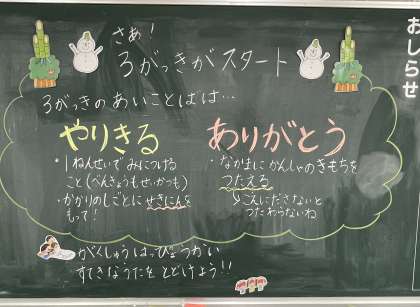 さぁ!
3がっきがスタート
おしらせ
3がっきのあいことばは…
やりきる
・1ねんせいでみにつける
こと(べんきょうもせいかつも)
・かかりのしごとにせきにんを
もって!
ありがとう
・なかまにかんしゃのきもちを
つたえる
↳こえにださないと
つたわらないね
がくしゅうはっぴょうかい
すてきなうたをとどけよう!!